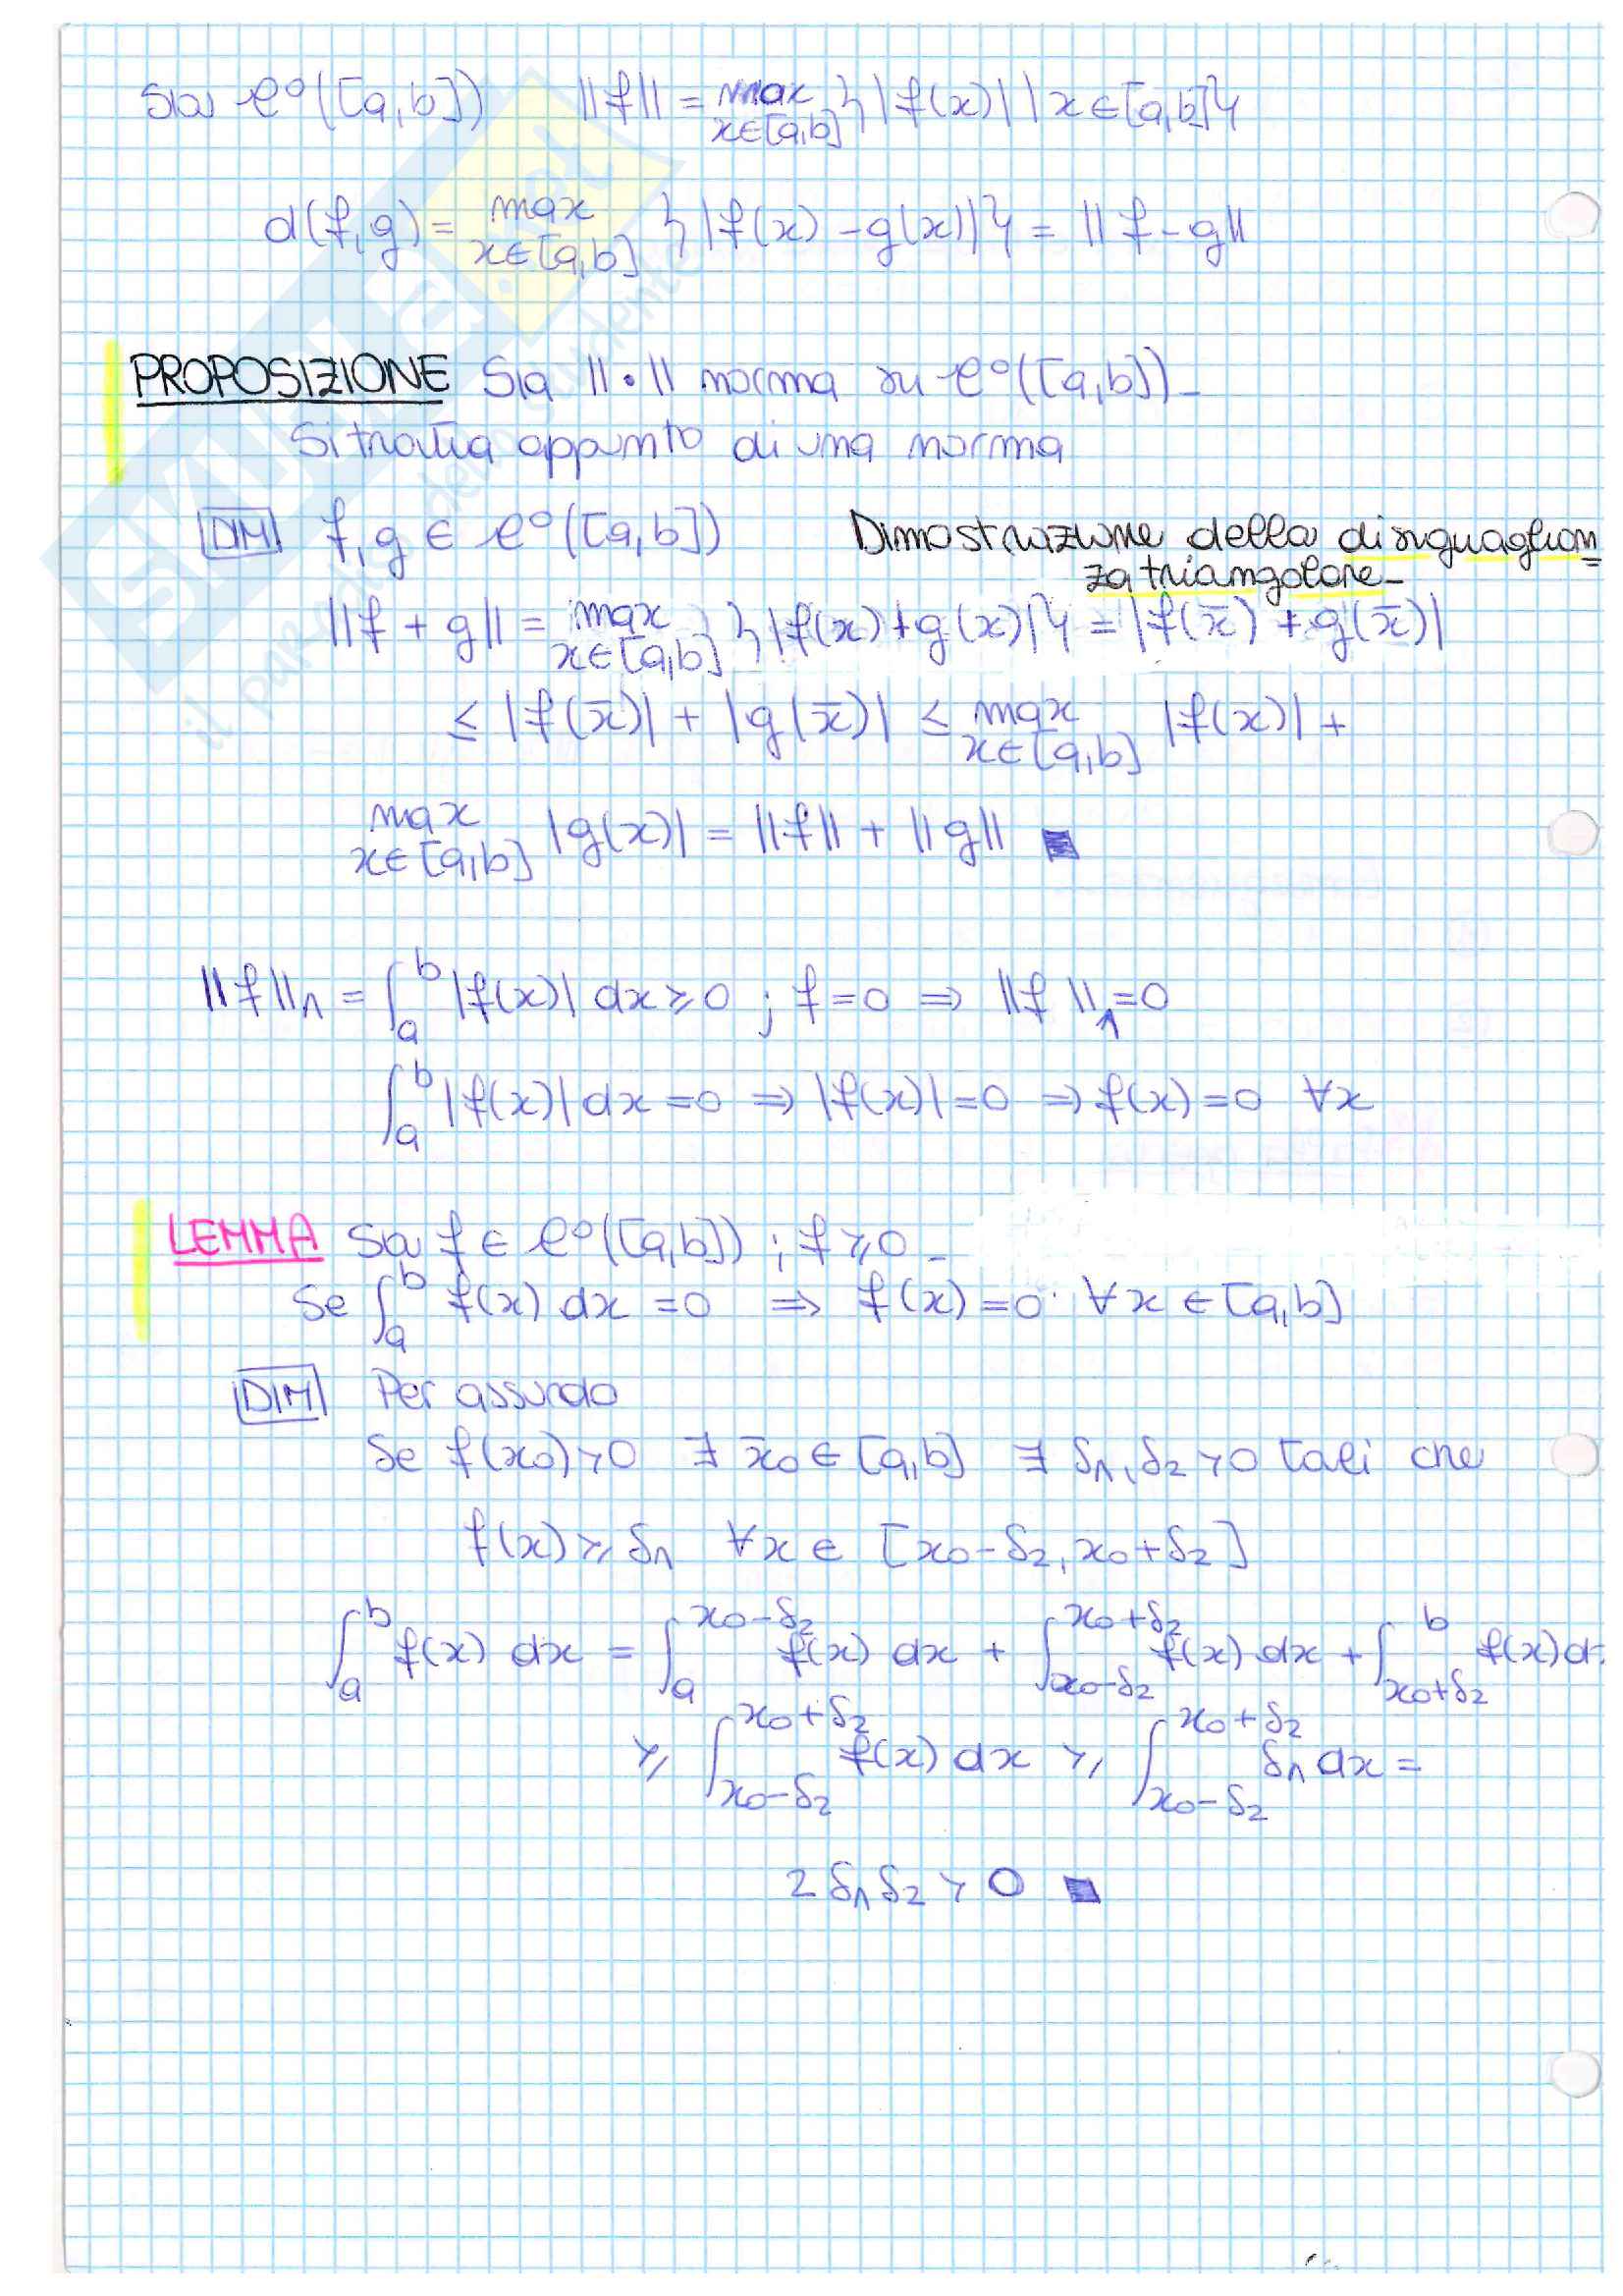 Sia C⁰([a,b]) ||f|| = max x∈[a,b] {|f(x)| | x∈[a,b]}
d(f,g) = max x∈[a,b] {|f(x) - g(x)|} = ||f - g||
PROPOSIZIONE Sia ||•|| norma su C⁰([a,b])_
Si tratta appunto di una norma
DIM f,g ∈ C⁰([a,b]) Dimostrazione della disuguaglian
za triangolare_
||f + g|| = max x∈[a,b] {|f(x)+g(x)|} = |f(x̄) + g(x̄)|
≤ |f(x̄)| + |g(x̄)| ≤ max x∈[a,b] |f(x)| +
max x∈[a,b] |g(x)| = ||f|| + ||g|| ■
||f||₁ = ∫ₐᵇ |f(x)| dx ≥ 0 ; f=0 ⇒ ||f||₁=0
∫ₐᵇ |f(x)| dx = 0 ⇒ |f(x)|=0 ⇒ f(x)=0 ∀x
LEMMA Sia f ∈ C⁰([a,b]) ; f ≥ 0_
Se ∫ₐᵇ f(x) dx = 0 ⇒ f(x)=0 ∀x ∈ [a,b]
DIM Per assurdo
Se f(x₀)>0 ∃ x₀ ∈ [a,b] ∃ δ₁,δ₂ >0 tali che
f(x) ≥ δ₁ ∀x ∈ [x₀-δ₂, x₀+δ₂]
∫ₐᵇ f(x) dx = ∫ₐ^(x₀-δ₂) f(x) dx + ∫_(x₀-δ₂)^(x₀+δ₂) f(x) dx + ∫_(x₀+δ₂)^b f(x) d
≥ ∫_(x₀-δ₂)^(x₀+δ₂) f(x) dx ≥ ∫_(x₀-δ₂)^(x₀+δ₂) δ₁ dx =
2 δ₁ δ₂ > 0 ■